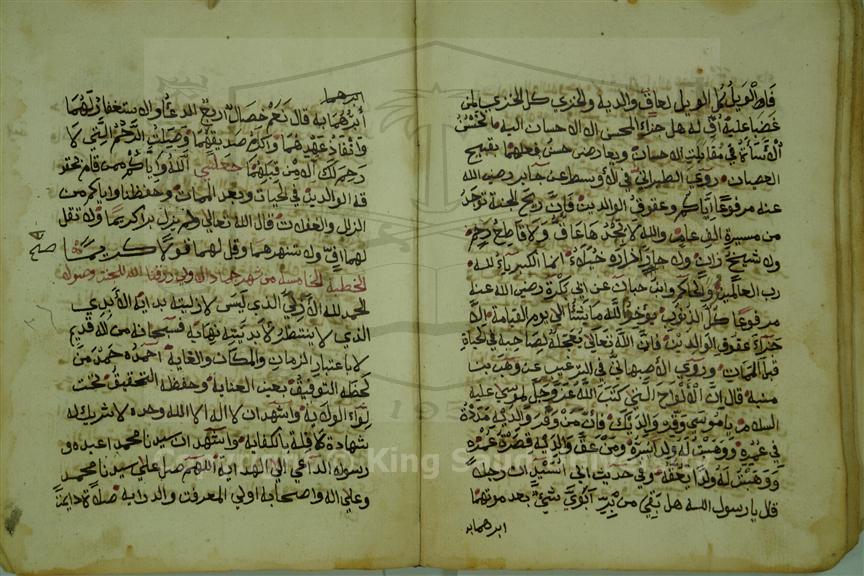 فالويل كل الويل لعاق والديه والخزي كل الخزي لمن
غضبا عليه اف له هل جزاء المحسن الا الاحسان اليه
الاساءة في مقابلة الاحسان ويعارض حسن فعلهما بقبيح
العصيان روي الطبراني في الاوسط عن جابر رضي الله
عنه مرفوعا اياكم وعقوق الوالدين فان ريح الجنة توجد
من مسيرة الف عام والله لا يجدها عاق ولا قاطع رحم
ولا شيخ زان ولا جار ازاره خيلاء انما الكبرياء لله
رب العالمين والحاكم وابن حبان عن ابي بكرة رضي الله عنه
مرفوعا كل الذنوب يؤخر الله ما يشاء الى يوم القيامة الا
عقوق الوالدين فان الله تعالى يعجله لصاحبه في الحياة
قبل الممات وروي الاصبهاني في الترغيب عن وهب بن
منبه قال ان الالواح التي كتب الله عز وجل لموسي عليه
السلام يا موسى وقر والديك فان من وقر والديه مددت
في عمره ووهبت له ولدا يبره ومن عق والديه قصرت عمره
ووهبت له ولدا يعقه وفي حديث ابي اسيد ان رجلا
قال يا رسول الله هل بقي من بر ابوي شيء بعد موتهما
ابرهما به
ابرهما
ابرهما به قال نعم خصال اربع الدعاء والاستغفار لهما
وانفاذ عهدهما واكرام صديقهما وصلة الرحم التي لا
رحم لك الا من قبلهما جعلني الله واياكم ممن قام بحقو
قه الوالدين في الحيات وبعد الممات وحفظنا واياكم من
الزلل والغفلات قال الله تعالى ولم يزل برا كريما ولا تقل
لهما اف ولا تنهرهما وقل لهما قولا كريما
الخطبة الخامسة من شهر جماد الاولى
الحمد لله الازلي الذي ليس لازليته بداية الابدي
الذي لا ينتظر لابديته نهاية فسبحانه من اله قديم
لا باعتبار الزمان والمكان والغاية احمده حمد من
لحظه التوفيق بعين العناية وحفظه التحقيق تحت
لواء الولاية واشهد ان لا اله الا الله وحده لا شريك له
شهادة واشهد ان سيدنا محمد اعبده و
رسوله الداعي الى الهداية اللهم صل علي سيدنا محمد
وعلي اله واصحابه اولي المعرفت والدرايه صلاة دايمة
King S
195